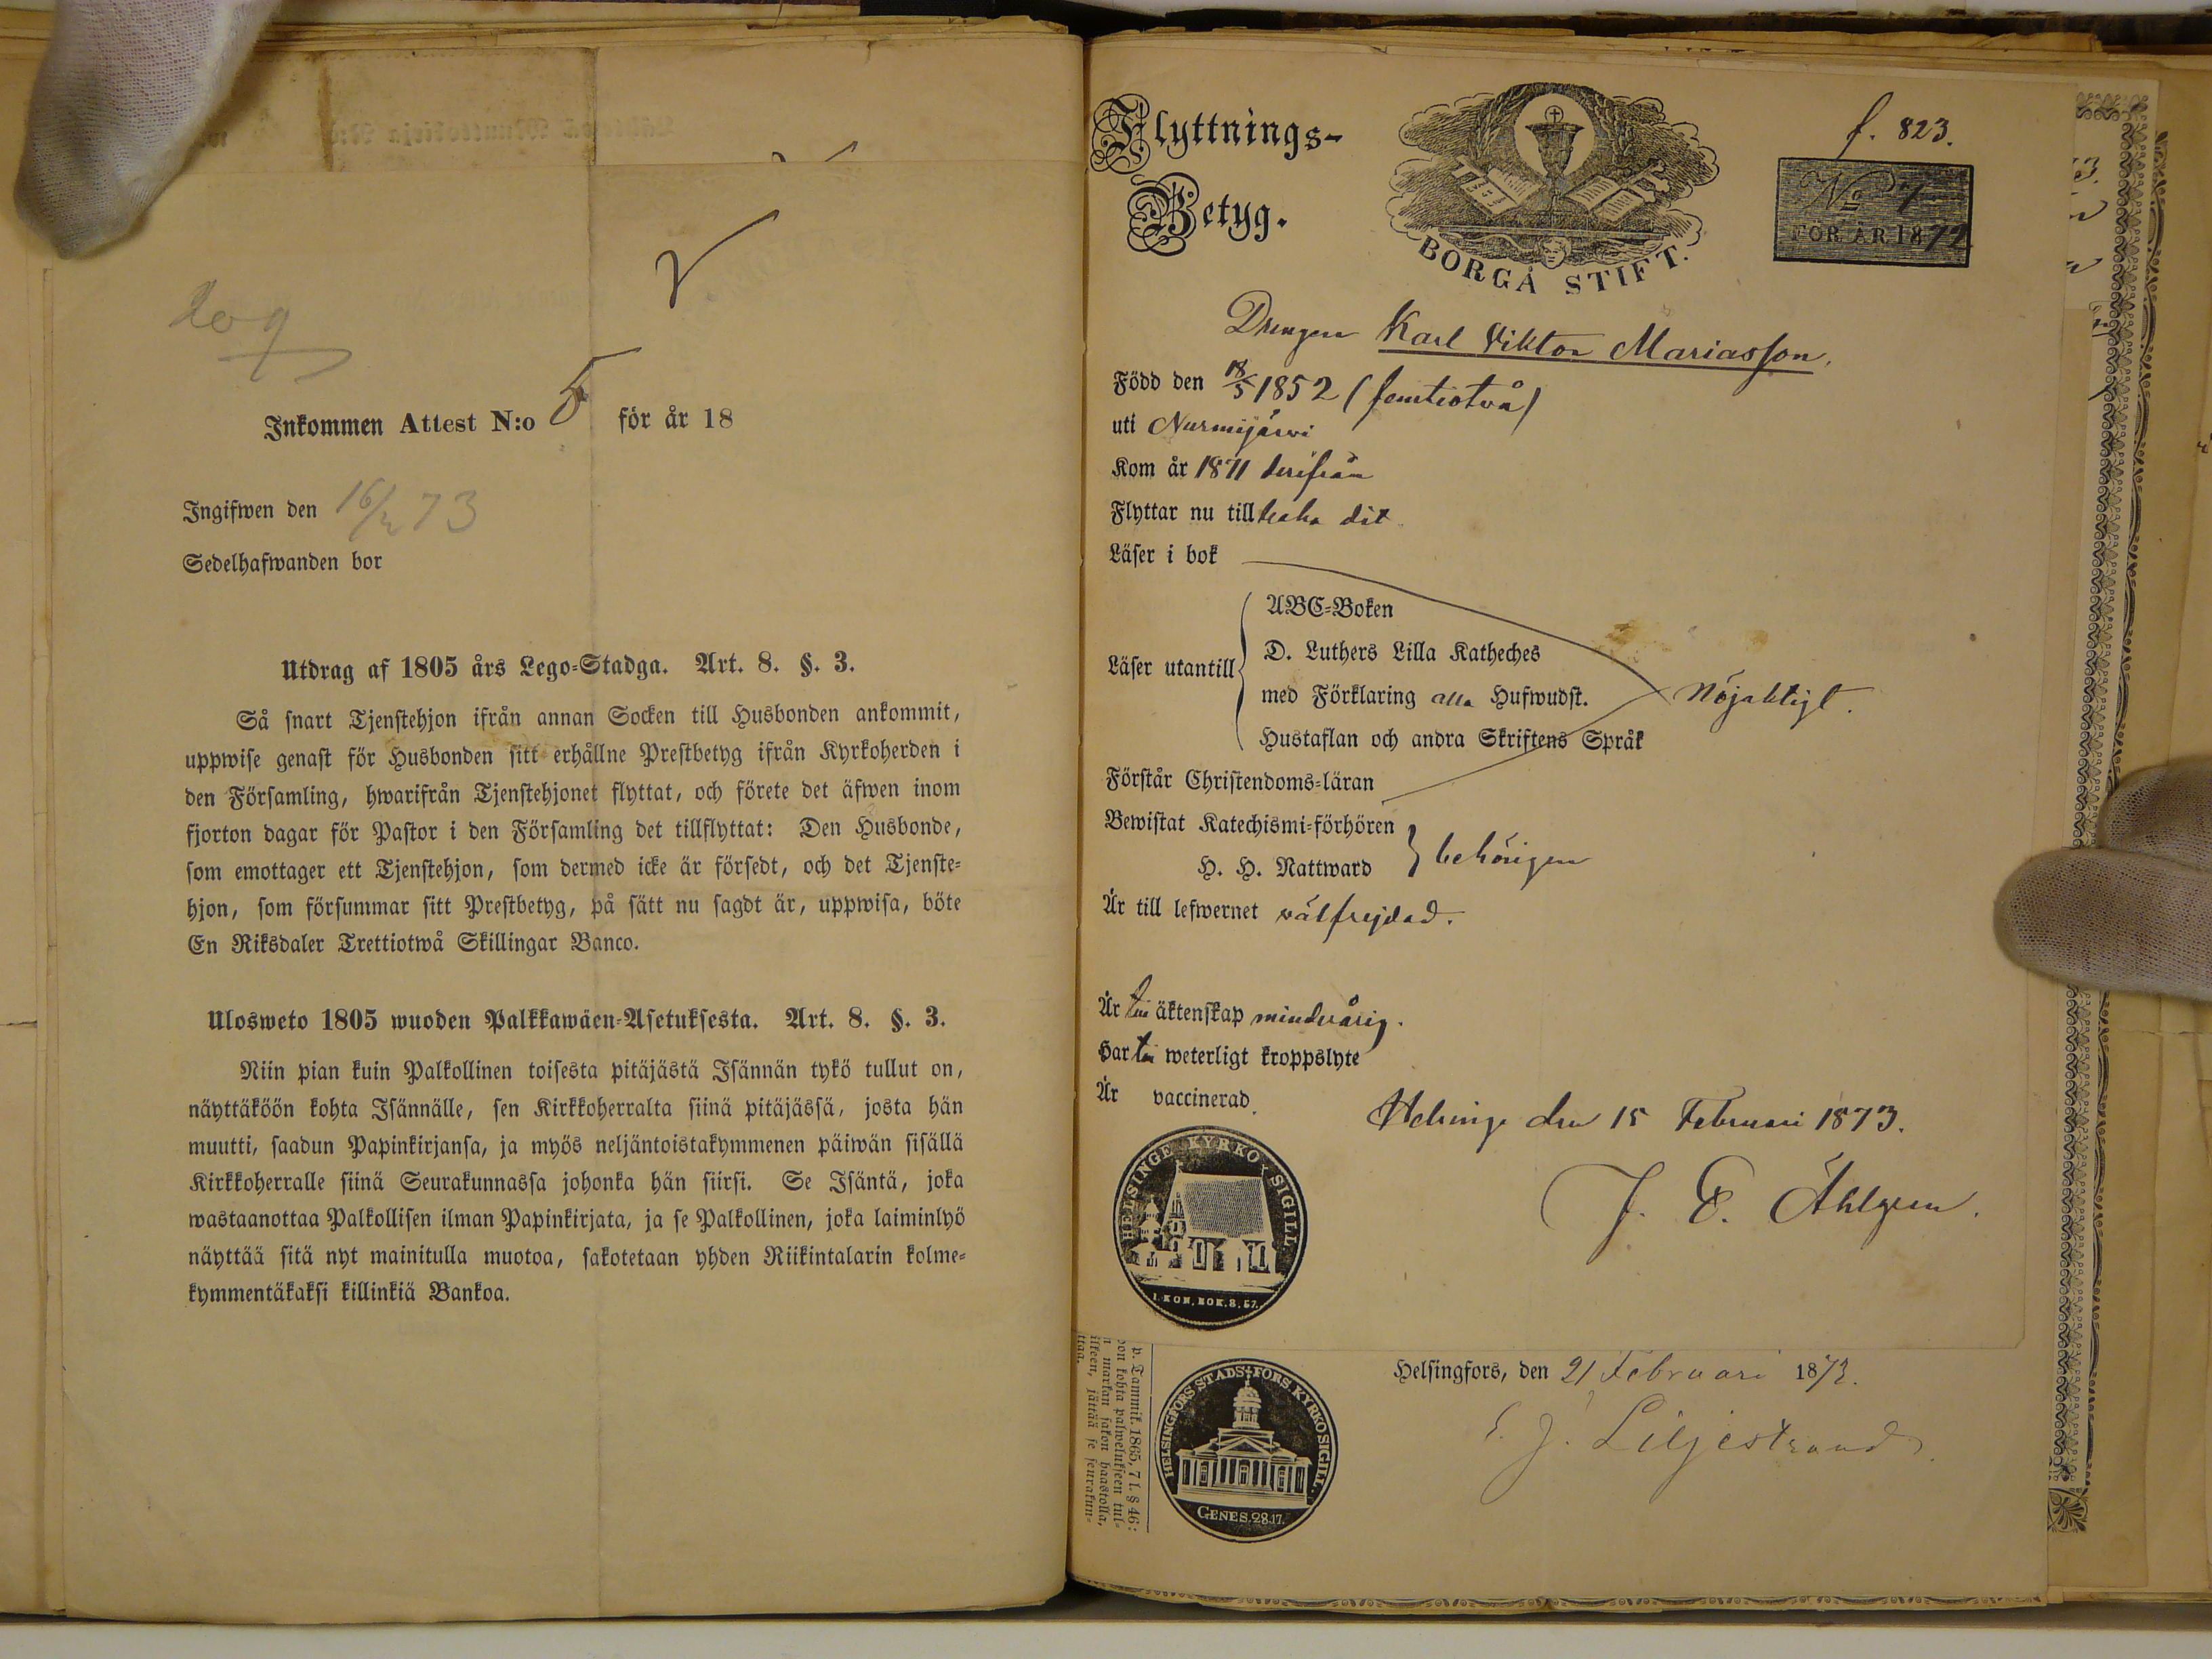 dog
Inkommen Attest N:o 5 för år 18
Ingifwen den 16/2 73
Sedelhafwanden bor
Utdrag af 1805 års Lego-Stadga. Art. 8. §. 3.
Så snart Tjenstehjon ifrån annan Socken till Husbonden ankommit,
uppwise genast för Husbonden sitt erhållne Prestbetyg ifrån Kyrkoherden i
den Församling, hwarifrån Tjenstehjonet flyttat, och förete det äfwen inom
fjorton dagar för Pastor i den Församling det tillflyttat: Den Husbonde,
som emottager ett Tjenstehjon, som dermed icke är försedt, och det Tjenste-
hjon, som försummar sitt Prestbetyg, på sätt nu sagdt är, uppwisa, böte
En Riksdaler Trettiotwå Skillingar Banco.
Ulosweto 1805 wuoden Palkkawäen-Asetuksesta. Art. 8. §. 3.
Niin pian kuin Palkollinen toisesta pitäjästä Isännän tykö tullut on,
näyttäköön kohta Isännälle, sen Kirkkoherralta siinä pitäjässä, josta hän
muutti, saadun Papinkirjansa, ja myös neljäntoistakymmenen päiwän sisällä
Kirkkoherralle siinä Seurakunnassa johonka hän siirsi. Se Isäntä, joka
wastaanottaa Palkollisen ilman Papinkirjata, ja se Palkollinen, joka laiminlyö
näyttää sitä nyt mainitulla muotoa, sakotetaan yhden Riikintalarin kolme-
kymmentäkaksi killinkiä Bankoa.
Flyttnings-
Betyg.
BORGÅ STIFT.
f. 823.
No 7
FÖR ÅR 1872
Drengen Karl Viktor Mariasson.
Född den 18/5 1852 (femtiotvå)
uti Nurmijärvi
Kom år 1871 derifrån
Flyttar nu till baka dit
Läser i bok
ABC-Boken
Läser utantill D. Luthers Lilla Katheches
med Förklaring alla Hufwudst. Nöjaktigt.
Hustaflan och andra Skriftens Språk
Förstår Christendoms-läran
Bewistat Katechismi-förhören
H. H. Nattward behörigen
Är till lefwernet välfrejdad.
Är till äktenskap minderårig.
Har ej weterligt kroppslyte
Är vaccinerad
Helsinge den 15 Februari 1873.
J. E. Åhlgren.
HELSINGE KYRKO SIGILL
I. KON. BOK. 8, 57.
p. Tammik. 1865, 7 l. § 46:
HELSINGFORS STADS FÖRS. KYRKOSIGILL.
GENES. 28.17.
Helsingfors, den 21 Februari 1873.
E. J. Liljestrand